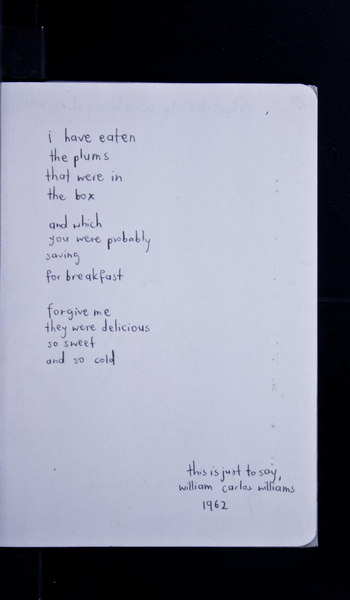 i have eaten
the plums
that were in
the box
and which
you were probably
saving
for breakfast
forgive me
they were delicious
so sweet
and so cold
this is just to say,
william carlos williams
1962